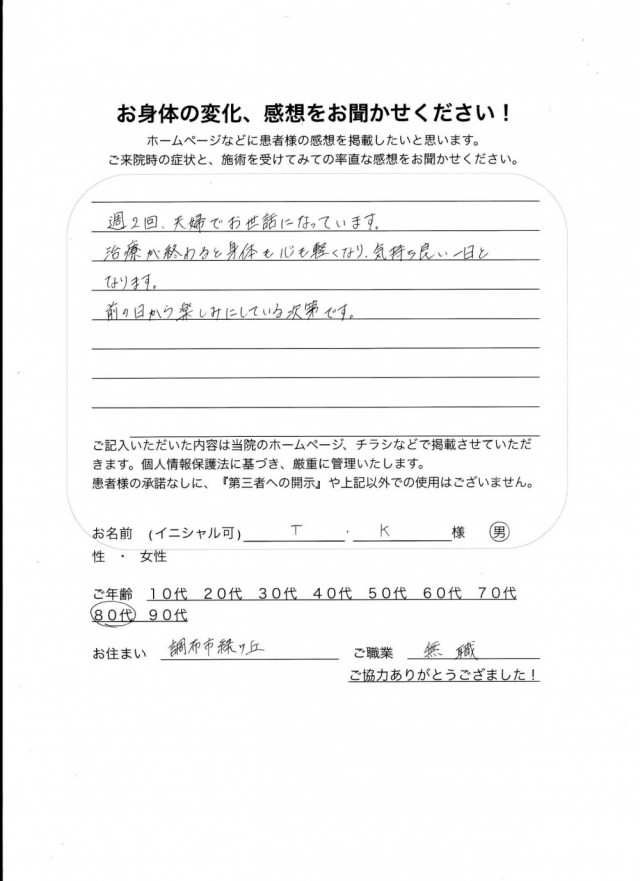 お身体の変化、感想をお聞かせください！
ホームページなどに患者様の感想を掲載したいと思います。
ご来院時の症状と、施術を受けてみての率直な感想をお聞かせください。
週2回、夫婦でお世話になっています。
治療が終わると身体も心も軽くなり、気持ち良い一日と
なります。
前の日から楽しみにしている次第です。
ご記入いただいた内容は当院のホームページ、チラシなどで掲載させていただ
きます。個人情報保護法に基づき、厳重に管理いたします。
患者様の承諾なしに、『第三者への開示』や上記以外での使用はございません。
お名前 (イニシャル可) T ・ K 様 男
性 ・ 女性
ご年齢 10代 20代 30代 40代 50代 60代 70代
80代 90代
お住まい 調布市緑ヶ丘 ご職業 無職
ご協力ありがとうござました！